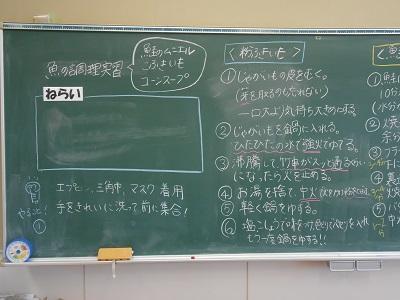 魚の調理実習
鮭のムニエル
こふきいも
コーンスープ
ねらい
エプロン、三角巾、マスク着用
手をきれいに洗って前に集合!
<粉ふきいも>
①じゃがいもの皮をむく。
(芽を取るのも忘れない)
一口大より気持ち大きめにする。
②じゃがいもを鍋に入れる。
ひたひたの水で強火でゆでる。
③沸騰して竹串がスッと通るくらい
になったら火を止める。
④お湯を捨て、中火
⑤軽く鍋をゆする。
⑥塩こしょうで
もう一度鍋をゆする!!
①鮭に
10分
(水分が
②焼
余分
③フラ
④
⑤バ